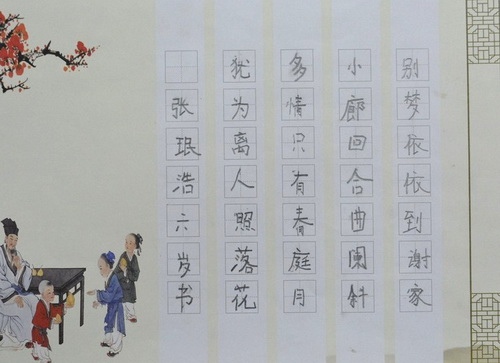 别梦依依到谢家
小廊回合曲阑斜
多情只有春庭月
犹为离人照落花
张珉浩六岁书